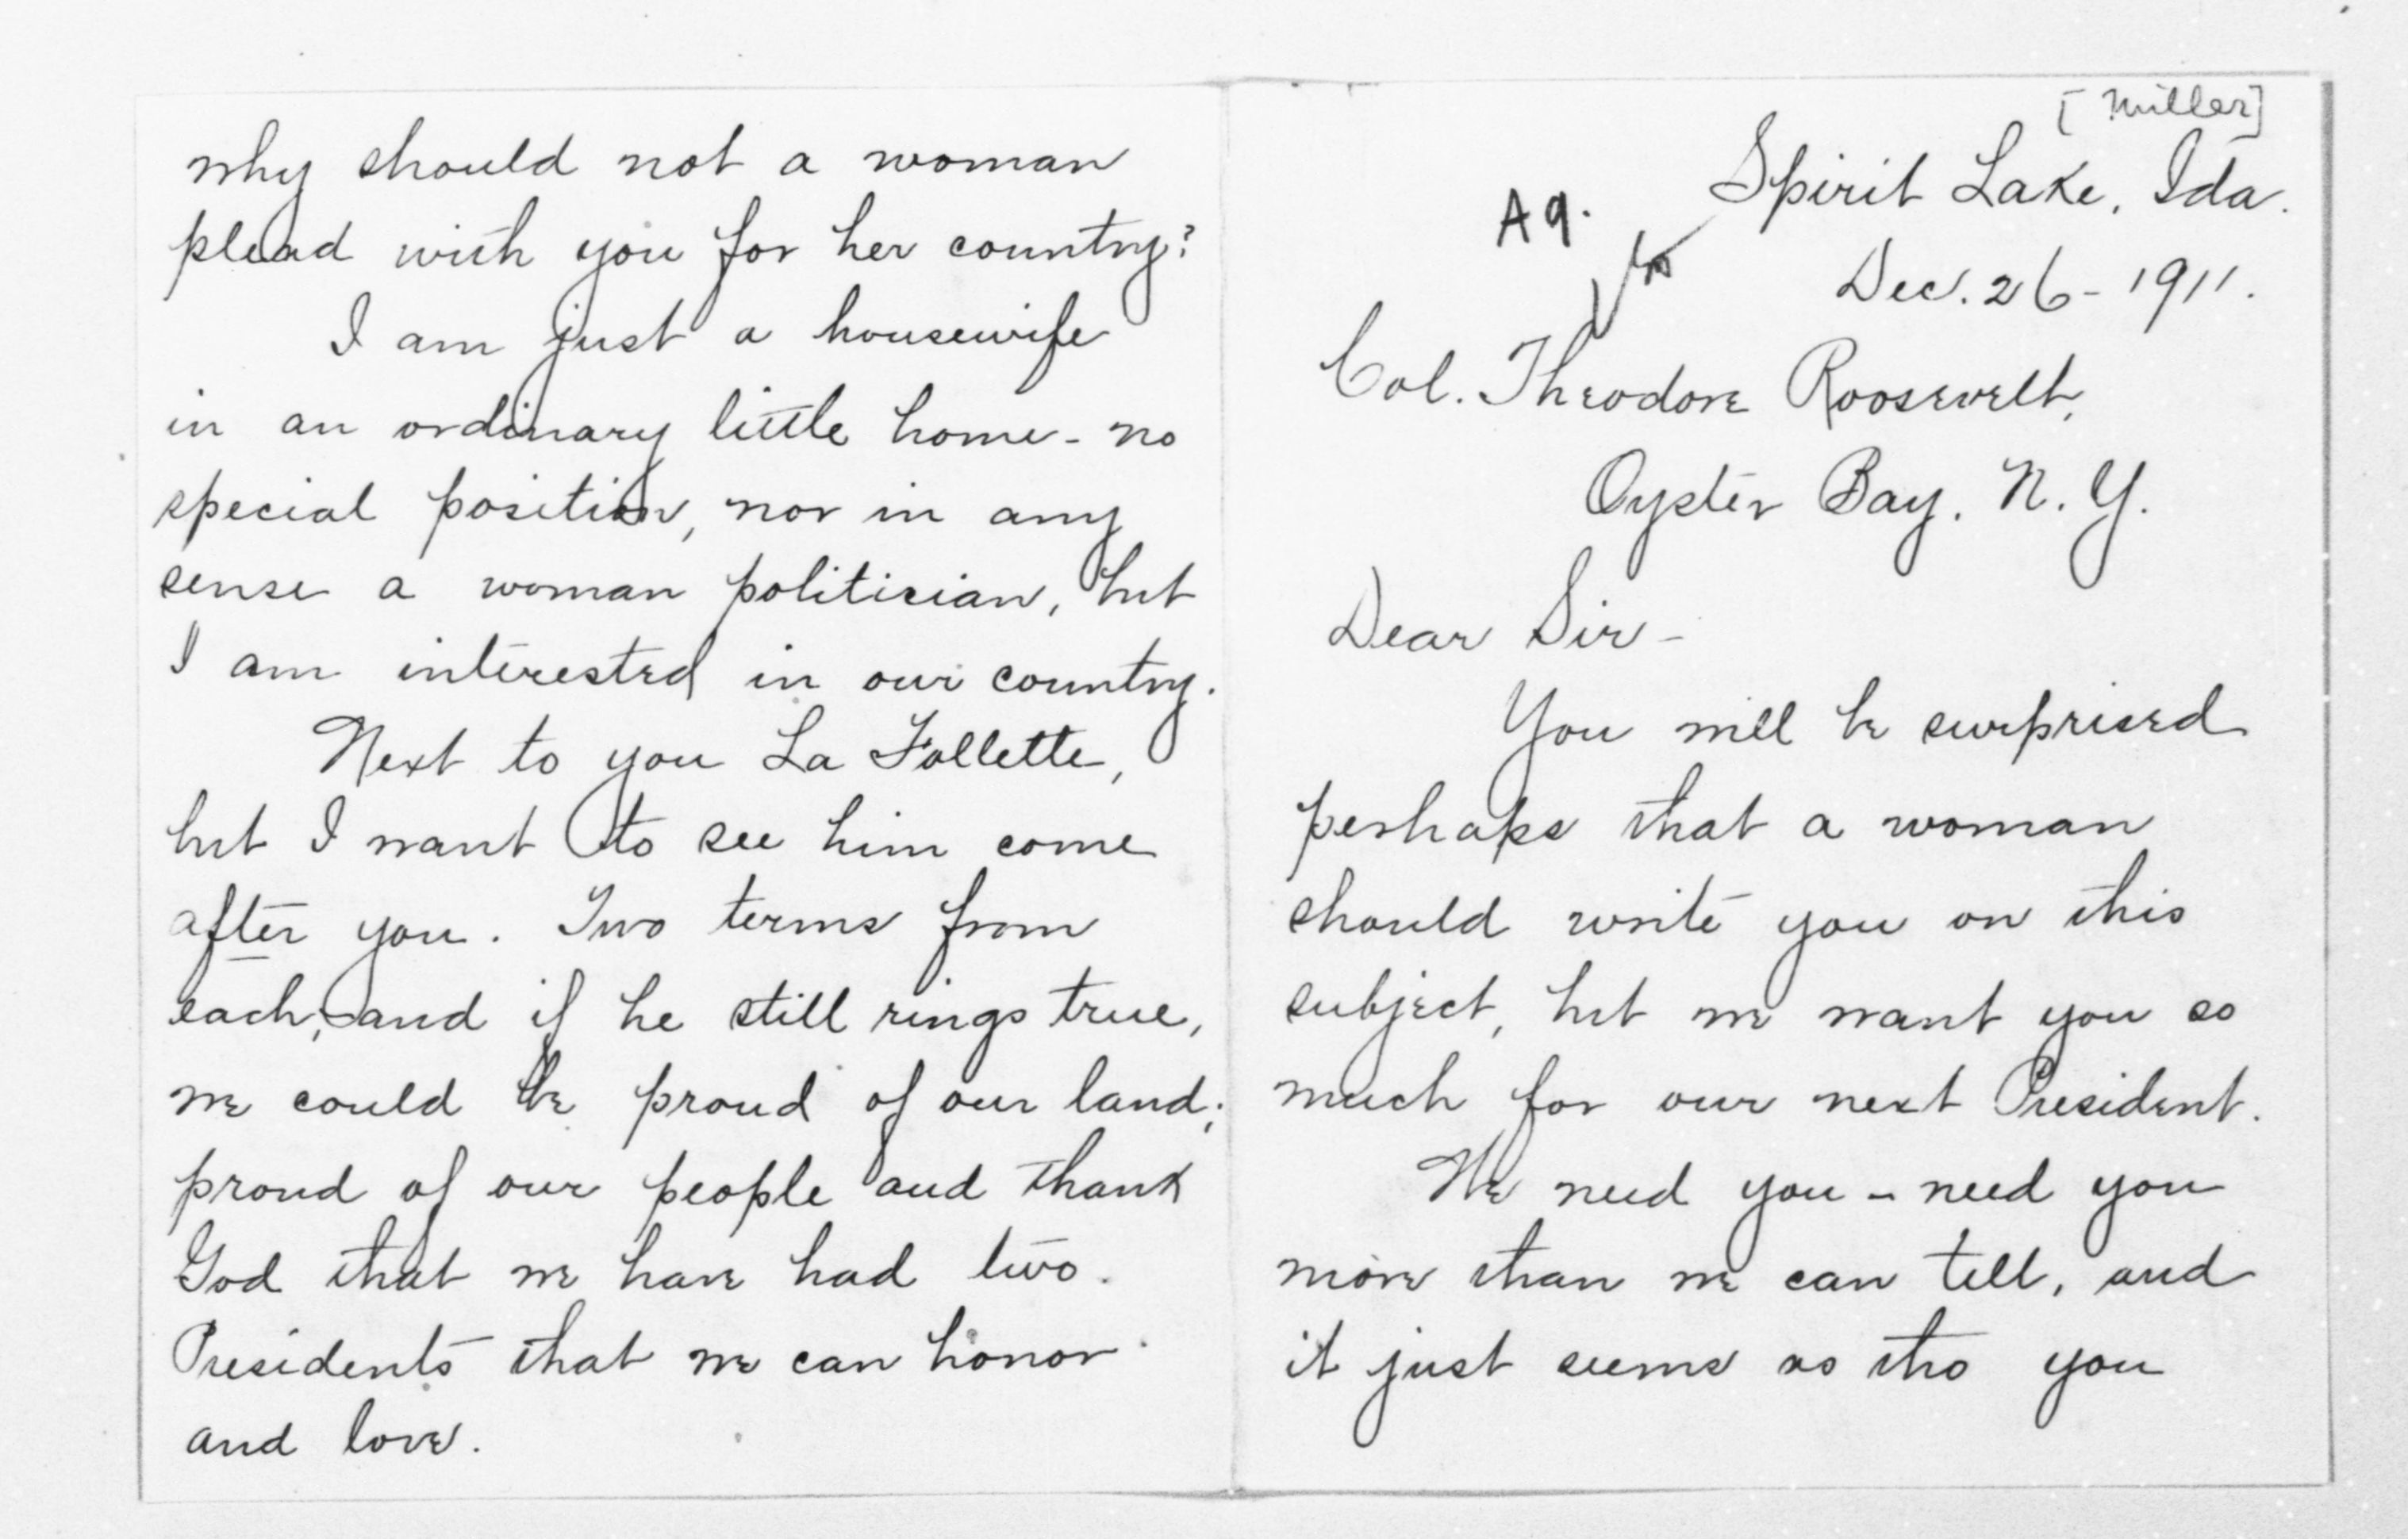 [Miller]
Spirit Lake, Ida.
A9.
Dec. 26 - 1911.
Col. Theodore Roosevelt,
Oyster Bay, N. Y.
Dear Sir -
You will be surprised
perhaps that a woman
should write you on this
subject, but we want you so
much for our next President.
We need you - need you
more than we can tell, and
it just seems as tho you
why should not a woman
plead with you for her country?
I am just a housewife
in an ordinary little home - no
special position, nor in any
sense a woman politician, but
I am interested in our country.
Next to you La Follette,
but I want to see him come
after you. Two terms from
each, and if he still rings true,
we could be proud of our land;
proud of our people and thank
God that we have had two
Presidents that we can honor
and love.